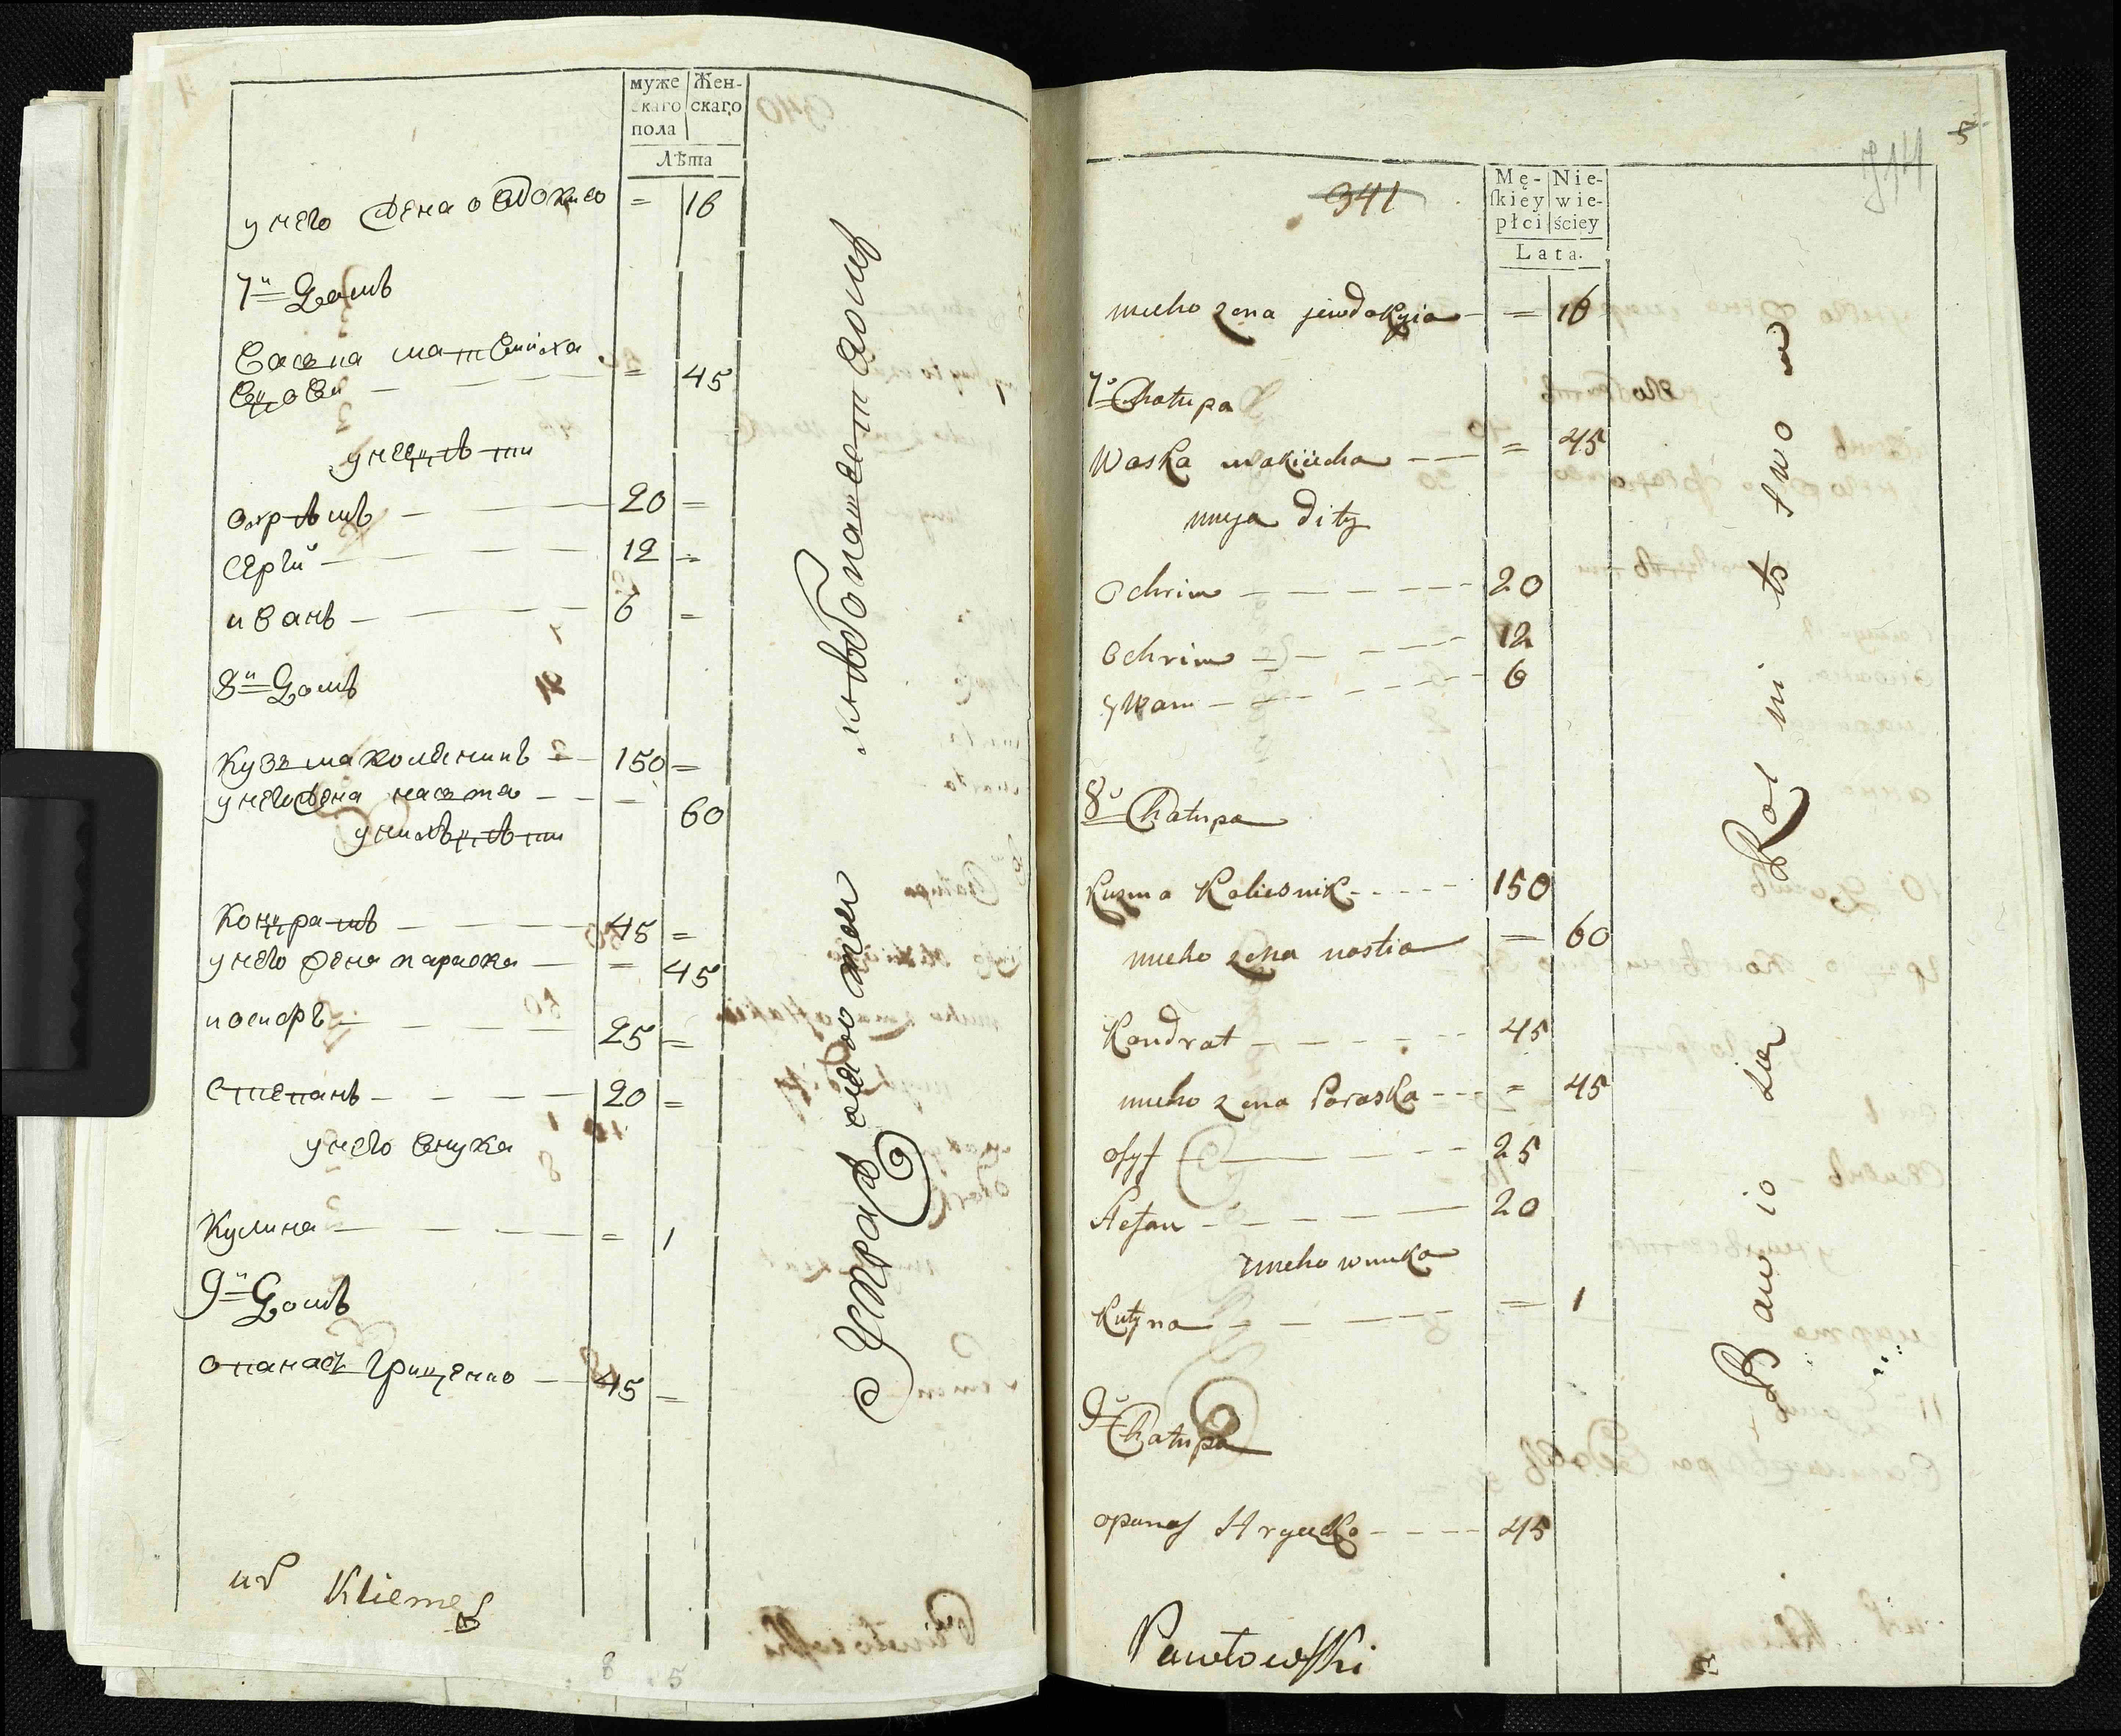 муже
скаго
пола
Жен-
скаго
Лѣта
у него жена овдокию = 16
7й Домъ
Васка матвииха
вдови = 45
у нея дѣти
охрѣмъ 20 =
серги 12 =
иванъ 6 =
8й Домъ
кузма колѣсникъ 150 =
у него жена настя 60
у нихъ дѣти
кондратъ 45 =
у него жена параска = 45
иосипъ 25 =
степанъ 20 =
у него внука
кулина = 1
9й Домъ
опанасъ Гриценко 45 =
Kliemes
341
5
Mę-
skiey
płci
Nie-
wie-
ściey
Lata.
uneho zena jewdokyia = 16
7a Chatupa
Waska makiicha = 45
uneja dity
Ochrim 20
Ochrim 12
ywan 6
8a Chatupa
Kuzma Koliesnik 150
uneho zena nastia = 60
Kondrat 45
uneho zena Paraska = 45
osyf 25
Stefan 20
uneho wnuka
Kulyna = 1
9a Chatupa
opanas Hrycko 45
Pawłowski